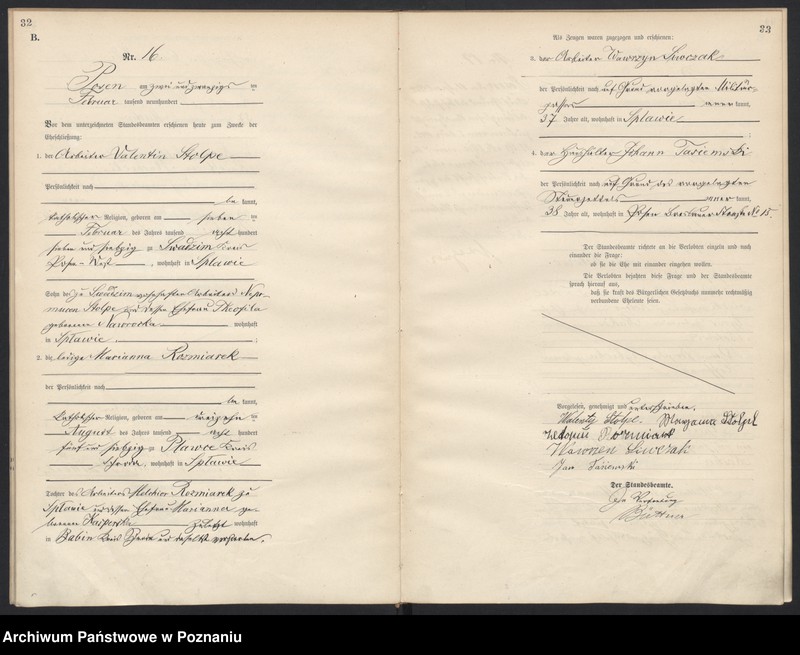 32
B.
Nr. 16.
Posen am zwei und zwanzigsten
Februar tausend neunhundert
Vor dem unterzeichneten Standesbeamten erschienen heute zum Zwecke der
Eheschließung:
1. der Arbeiter Valentin Stolpe
der Persönlichkeit nach
be kannt,
katholischer Religion, geboren am sieben ten
Februar des Jahres tausend acht hundert
sieben und siebzig zu Swadzim Kreis
Posen-West, wohnhaft in Splawie
Sohn des zu Swadzim Arbeiters Nepo-
mucen Stolpe und dessen Ehefrau Theofila
geborenen Nawrocka wohnhaft
in Splawie ;
2. die ledige Marianna Rozmiarek
der Persönlichkeit nach
be kannt,
katholischer Religion, geboren am ten
August des Jahres tausend acht hundert
fünf und siebzig zu Plawce Kreis
Schroda, wohnhaft in Splawie
Tochter des Arbeiters Melchior Rozmiarek zu
Splawie und dessen Ehefrau Marianna ge-
borenen Kasperska zuletzt wohnhaft
in Babin Kreis Schroda und daselbst verstorben.
33
Als Zeugen waren zugezogen und erschienen:
3. der Arbeiter Wawrzyn Siwczak
der Persönlichkeit nach auf Grund vorgelegten Militär-
passes aner kannt,
37 Jahre alt, wohnhaft in Splawie
;
4. der Haushälter Johann Tasiemski
der Persönlichkeit nach auf Grund des vorgelegten
Steuerzettels aner kannt,
38 Jahre alt, wohnhaft in Posen Breslauer Straße No 15.
Der Standesbeamte richtete an die Verlobten einzeln und nach
einander die Frage:
ob sie die Ehe mit einander eingehen wollen.
Die Verlobten bejahten diese Frage und der Standesbeamte
sprach hierauf aus,
daß sie kraft des Bürgerlichen Gesetzbuchs nunmehr rechtmäßig
verbundene Eheleute seien.
Vorgelesen, genehmigt und unterschrieben.
Walenty Stolpe. Maryanna Stolpe
Rozmiarek
Wawrzen Siwczak
Jan Tasiemski
Der Standesbeamte.
In Vertretung
Büttner
Archiwum Państwowe w Poznaniu